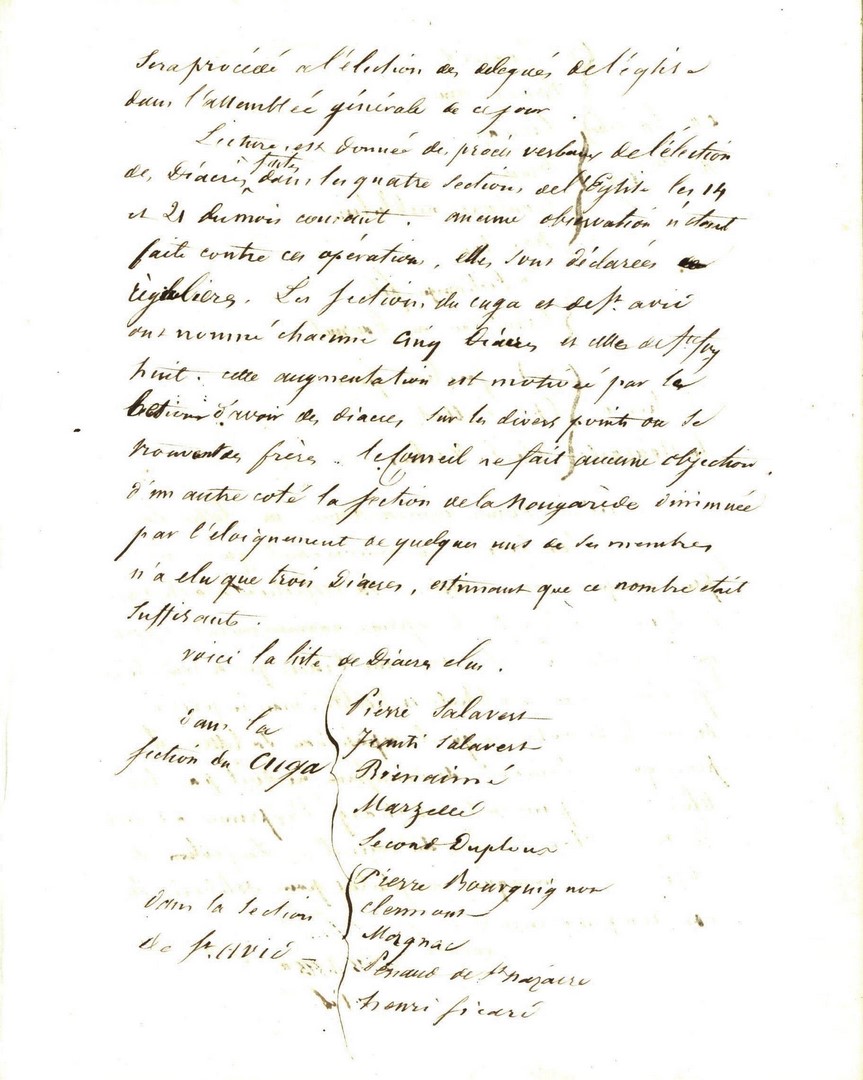 sera procédé a l'élection des delegués de l'église
dans l'assemblée générale de ce jour.
Lecture est donnée des procès verbaux de l'élection
des Diacres faites dans les quatre sections de l'Eglise les 14
et 21 du mois courant. aucune observation n'étant
faite contre ces opérations, elles sont déclarées
règulières. Les sections du cuga et de St. avit
ont nommé chacune cinq Diacres et celle de Ste foy
huit. cette augmentation est motivée par le
besoin d'avoir des diacres sur les divers points ou se
trouvent des frères. le Conseil ne fait aucune objection.
d'un autre coté la section de la Nougarède diminuée
par l'éloignement de quelques uns de ses membres
n'a elu que trois Diacres, estimant que ce nombre etait
suffisant.
voici la liste de Diacres elus.
dans la section du cuga
Pierre Salavert
Jeanti Salavert
Bienaimé
Marzellé
Second Dupleux
dans la section de St. avit
Pierre Bourguignon
clermont
Magnac
Penaud de St nazaire
henri sicard